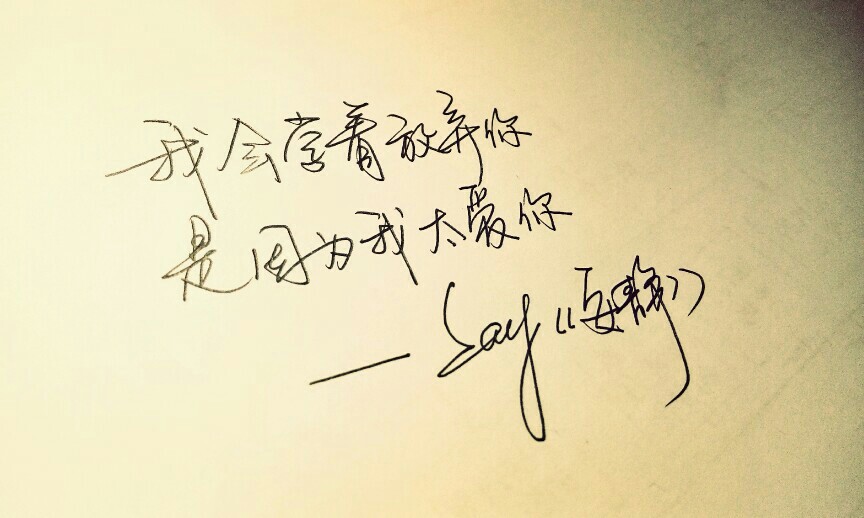 我会学着放弃你
是因为我太爱你
—Say《安静》